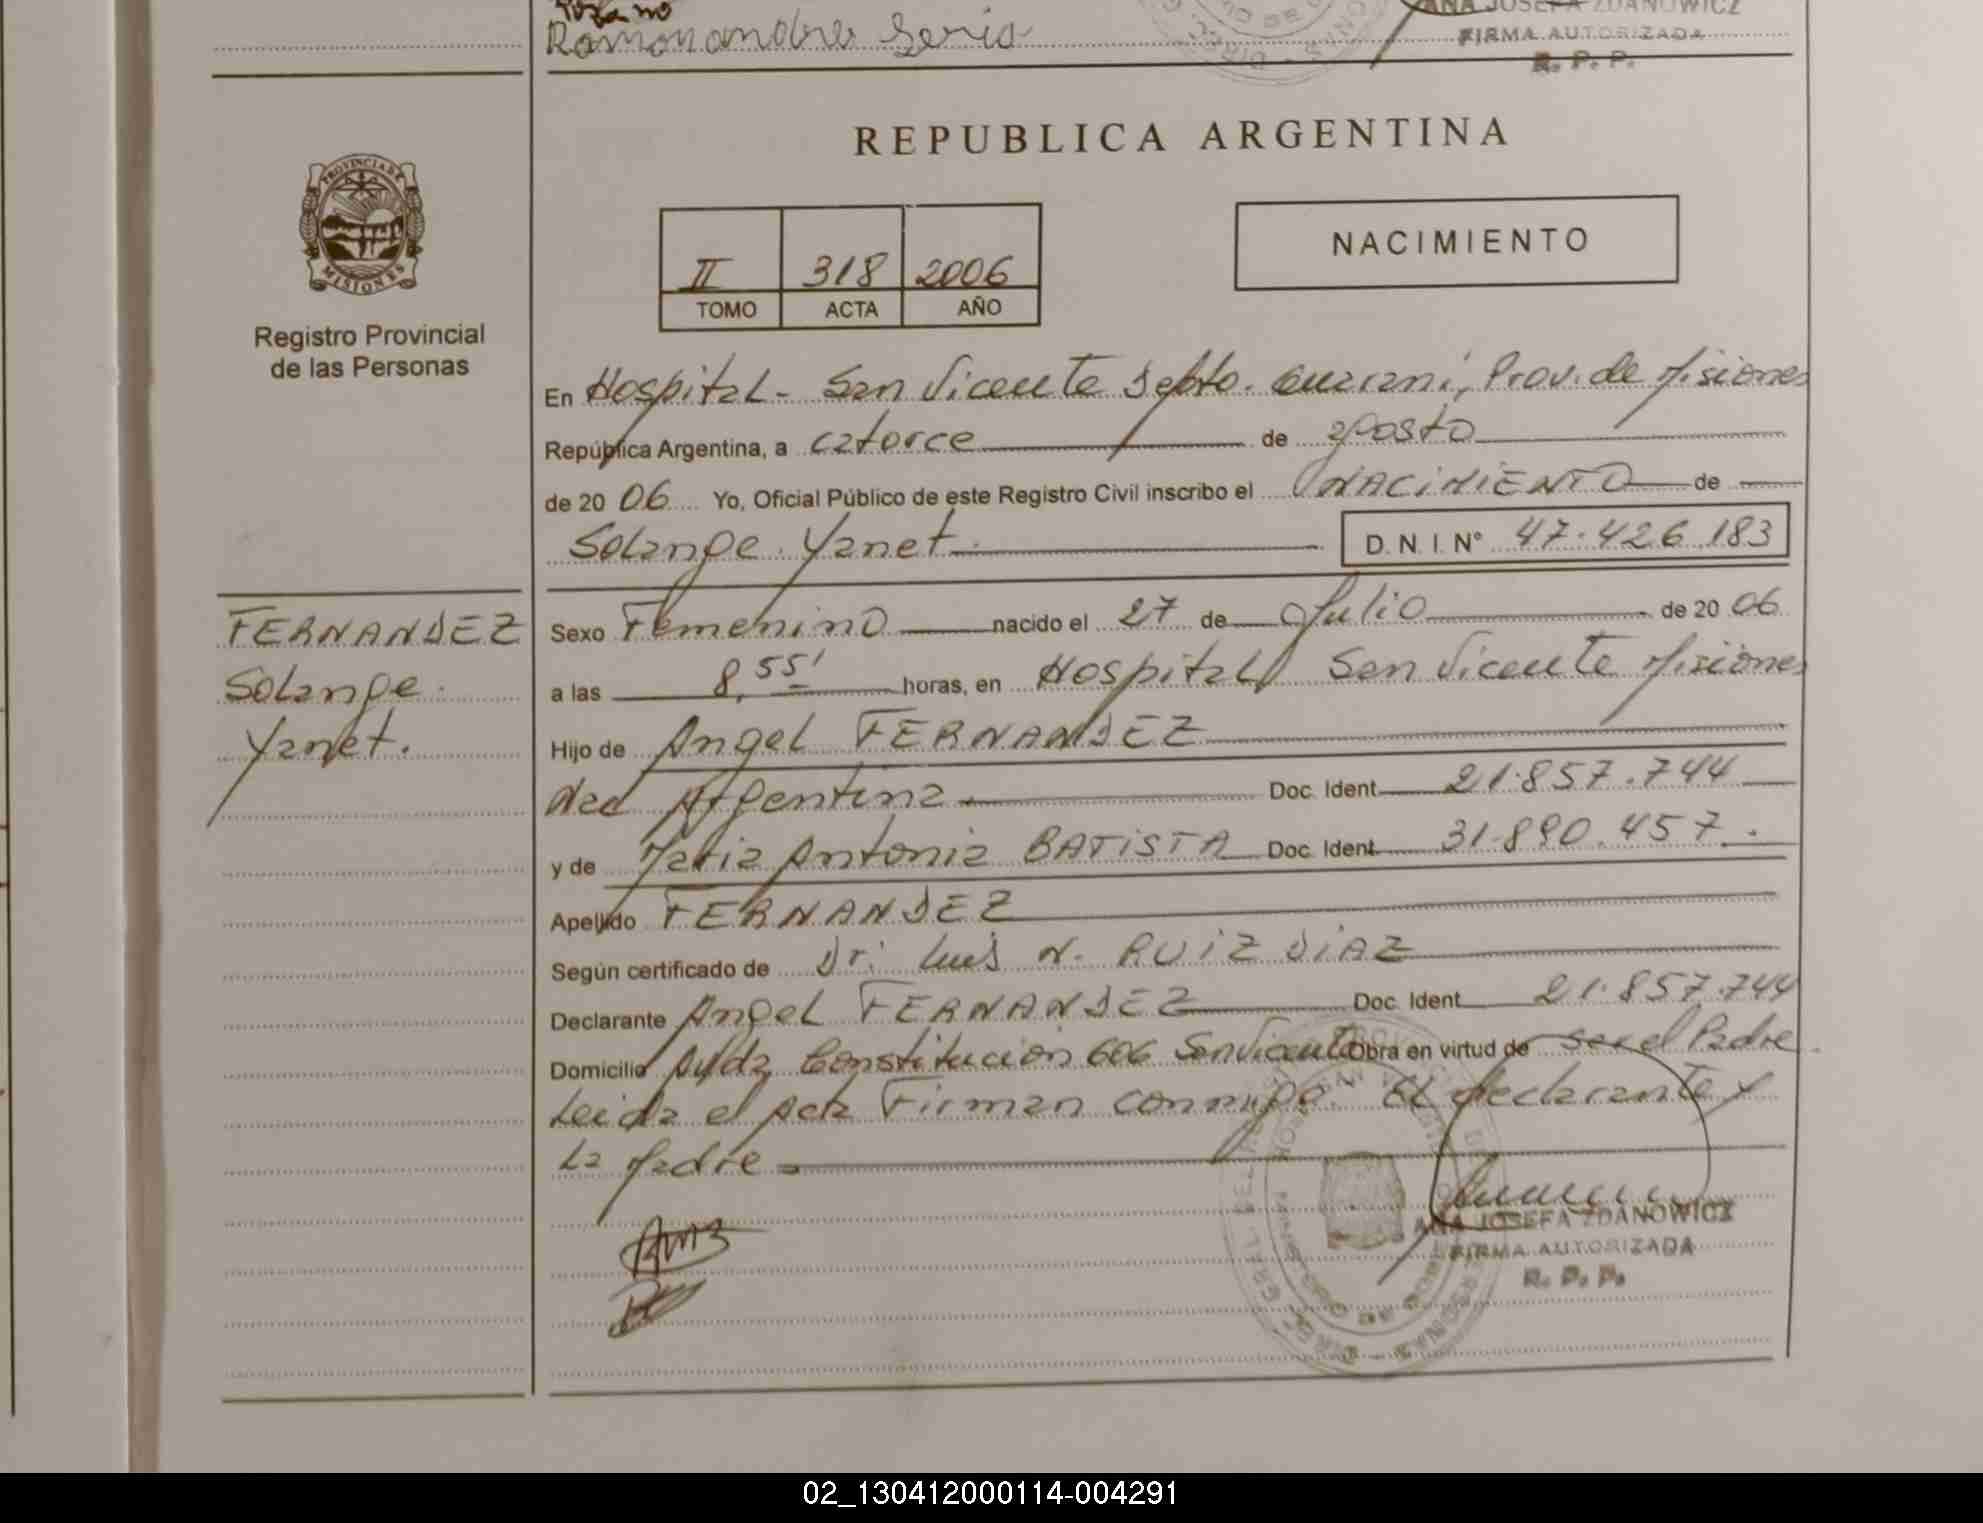 Ramon andres Seria
ANA JOSEFA ZDANOWICZ
FIRMA AUTORIZADA
R. P. P.
REPUBLICA ARGENTINA
PROVINCIA DE MISIONES
Registro Provincial
de las Personas
II 318 2006
TOMO ACTA AÑO
NACIMIENTO
En Hospital - San Vicente Depto. Guarani, Prov. de Misiones
República Argentina, a catorce de agosto
de 20 06 Yo, Oficial Público de este Registro Civil inscribo el NACIMIENTO de
Solange Yanet D. N. I. N° 47.426.183
FERNANDEZ
Solange
Yanet.
Sexo Femenino nacido el 27 de Julio de 20 06
a las 8,55' horas, en Hospital San Vicente Misiones
Hijo de Angel FERNANDEZ
Nac Argentina Doc. Ident 21.857.744
y de Maria Antonia BATISTA Doc. Ident 31.890.457.
Apellido FERNANDEZ
Según certificado de Dr. Luis N. RUIZ DIAZ
Declarante Angel FERNANDEZ Doc. Ident 21.857.744
Domicilio Avda Constitucion 606 San Vicente Obra en virtud de ser el Padre
Leida el Acta Firman conmigo. El declarante y
La Madre
ANA JOSEFA ZDANOWICZ
FIRMA AUTORIZADA
R. P. P.
02_130412000114-004291